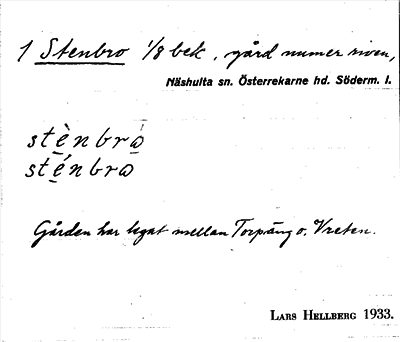 1 Stenbro 1/8 bek., gård numer riven,
Näshulta sn. Österrekarne hd. Söderm. l.
stè̱nbrò̱
sté̱nbro
Gården har legat mellan Torpäng o. Vreten.
LARS HELLBERG 1933.